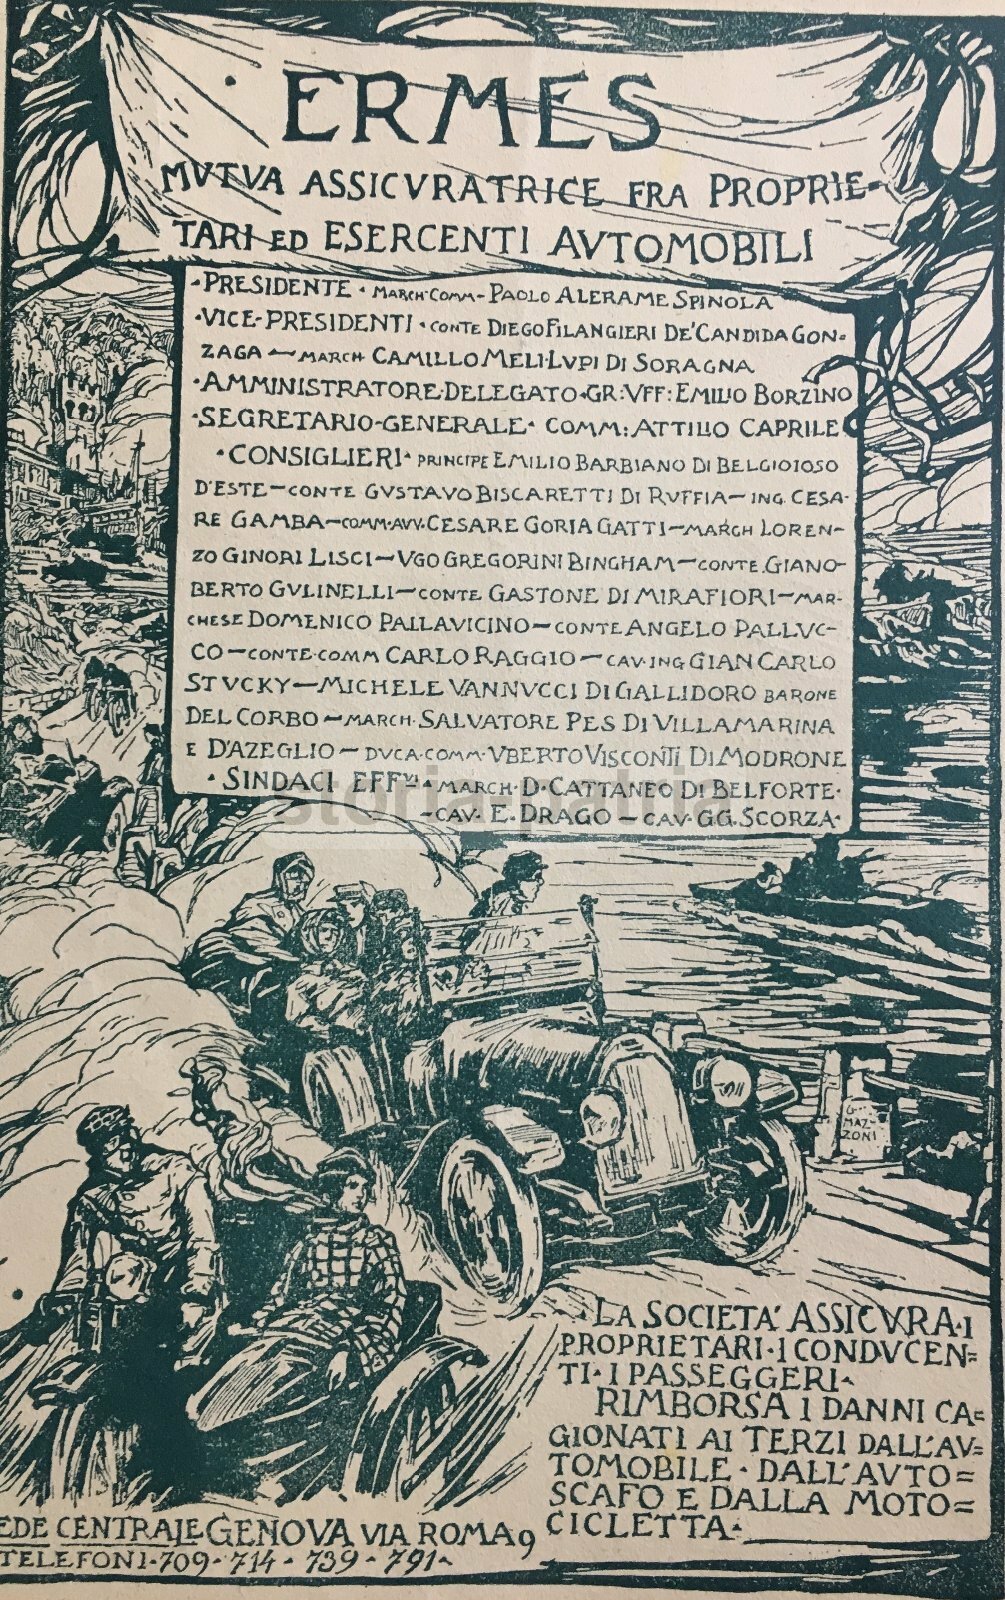 ERMES
MVTVA ASSICVRATRICE FRA PROPRIE-
TARI ED ESERCENTI AVTOMOBILI
·PRESIDENTE · MARCH·COMM- PAOLO ALERAME SPINOLA
·VICE-PRESIDENTI · CONTE DIEGO FILANGIERI DE' CANDIDA GON=
ZAGA — MARCH CAMILLO MELI·LVPI DI SORAGNA
·AMMINISTRATORE·DELEGATO·GR:VFF: EMILIO BORZINO
·SEGRETARIO-GENERALE· COMM: ATTILIO CAPRILE
·CONSIGLIERI· PRINCIPE EMILIO BARBIANO DI BELGIOIOSO
D'ESTE — CONTE GVSTAVO BISCARETTI DI RVFFIA — ING CESA-
RE GAMBA — COMM·AVV. CESARE GORIA GATTI — MARCH LOREN-
ZO GINORI LISCI — VGO GREGORINI BINGHAM — CONTE GIANO-
BERTO GVLINELLI — CONTE GASTONE DI MIRAFIORI — MAR-
CHESE DOMENICO PALLAVICINO — CONTE ANGELO PALLVC-
CO — CONTE·COMM CARLO RAGGIO — CAV·ING GIAN CARLO
STVCKY — MICHELE VANNVCCI DI GALLIDORO BARONE
DEL CORBO — MARCH· SALVATORE PES DI VILLAMARINA
E D'AZEGLIO — DVCA·COMM· VBERTO VISCONTI DI MODRONE
· SINDACI EFFVI · MARCH·D·CATTANEO DI BELFORTE·
-CAV· E. DRAGO — CAV· GG. SCORZA·
storia patria
MAZ-
ZONI
LA SOCIETA' ASSICVRA·I
PROPRIETARI·I CONDVCEN=
TI·I PASSEGGERI·
RIMBORSA I DANNI CA=
GIONATI AI TERZI DALL'AV=
TOMOBILE·DALL'AVTO=
SCAFO E DALLA MOTO=
CICLETTA·
EDE CENTRALE GENOVA VIA ROMA 9
TELEFONI·709·714·739·791